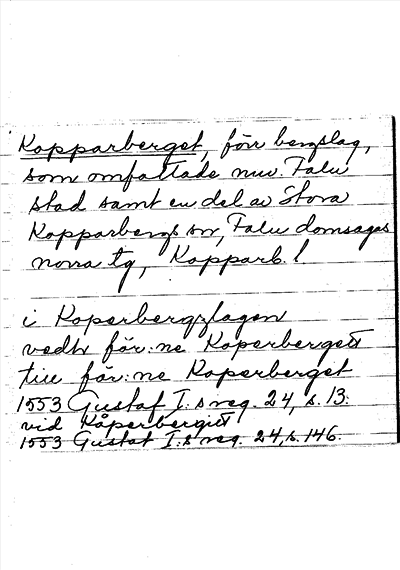 Kopparberget, förr bergslag,
som omfattade nuv. Falu
stad samt en del av Stora
Kopparbergs sn, Falu domsagas
norra tg, Kopparb. l
i Koperbergzlagen
vedh för:ne Koperbergett
till för:ne Koperberget
1553 Gustaf I:s reg. 24, s. 13.
vid Kåperbergiet
1553 Gustaf I:s reg. 24, s. 146.